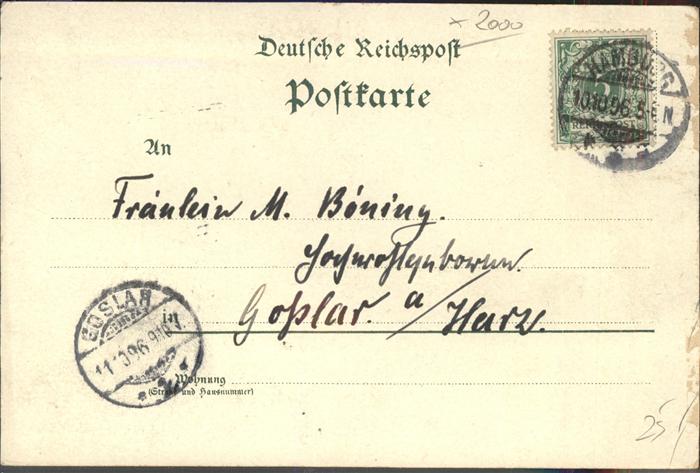 x 2000
Deutsche Reichspost
Postkarte
HAMBURG
10.10.96.5-6N
5
REICHSPOST
An
Fräulein M. Böning.
Hochwohlgeboren.
in Goslar a/Harz.
GOSLAR
11.10.96.9-10V.
Wohnung
(Straße und Hausnummer)
25